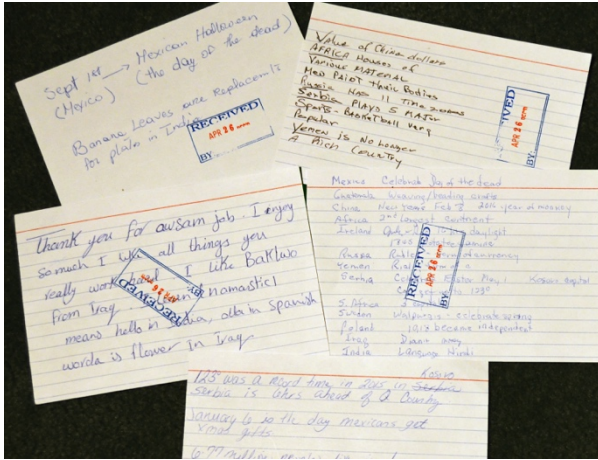 Sept 1st → Mexican Halloween
(Mexico) (the day of the dead)
Banana Leaves are Replacements
for plates in India
RECEIVED
APR 26
BY:
Value of China dollars
AFRICA Houses of
VARIOUS MATERIAL
Men PAINT their Bodies
Russia Has 11 Time zones
Serbia PLAYS 5 MAJOR
Sports - BASKETBALL very
Popular
Yemen is No longer
A Rich Country
RECEIVED
APR 26
BY:
Thank you for awsam job. I enjoy
so much I all things you
really work hard. I like Baklwo
from Iraq. namastic1
means hello in India, olla in Spanish
worda is flower in Iraq.
RECEIVED
APR 26
BY:
Mexico Celebrate Day of the dead
Guatemala Weaving/beading crafts
China New Years Feb 8 2016 year of monkey
Africa 2nd largest continent
Ireland daylight
Russia Ruble currency
Yemen Rial
Serbia Easter Kosovo capital
123°
S. Africa
Sweden Walpurgis - celebrate spring
Poland 1918 became independent
Iraq Dinar
India Language Hindi
RECEIVED
APR 26
BY:
Kosovo
123° was a record time in 2015 in Serbia
Serbia is 6hrs ahead of a Country
January 6 is the day mexicans get
Xmas gifts
6.77 million people